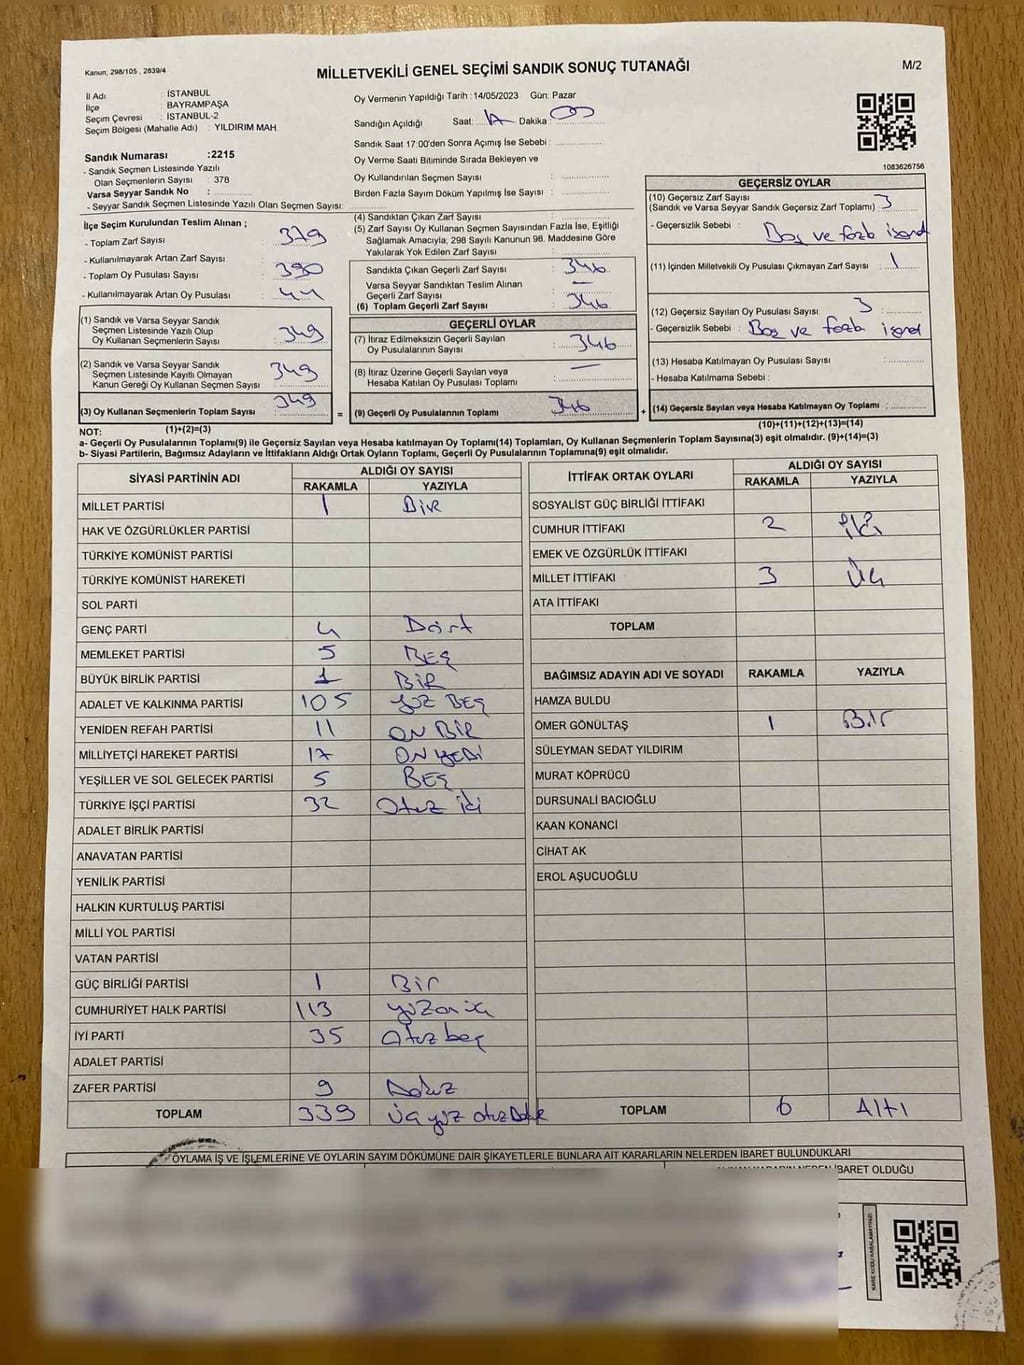 Kanun; 298/105 , 2839/4
MİLLETVEKİLİ GENEL SEÇİMİ SANDIK SONUÇ TUTANAĞI
M/2
İl Adı : İSTANBUL
İlçe : BAYRAMPAŞA
Seçim Çevresi : İSTANBUL-2
Seçim Bölgesi (Mahalle Adı) : YILDIRIM MAH.
Sandık Numarası :2215
- Sandık Seçmen Listesinde Yazılı
Olan Seçmenlerin Sayısı : 378
Varsa Seyyar Sandık No :
- Seyyar Sandık Seçmen Listesinde Yazılı Olan Seçmen Sayısı:
Oy Vermenin Yapıldığı Tarih :14/05/2023 Gün: Pazar
Sandığın Açıldığı Saat: 17 Dakika : 00
Sandık Saat 17:00'den Sonra Açımış İse Sebebi :
Oy Verme Saati Bitiminde Sırada Bekleyen ve
Oy Kullandırılan Seçmen Sayısı :
Birden Fazla Sayım Döküm Yapılmış İse Sayısı :
1083626756
İlçe Seçim Kurulundan Teslim Alınan ;
- Toplam Zarf Sayısı : 379
- Kullanılmayarak Artan Zarf Sayısı :
- Toplam Oy Pusulası Sayısı : 390
- Kullanılmayarak Artan Oy Pusulası : 41
(1) Sandık ve Varsa Seyyar Sandık
Seçmen Listesinde Yazılı Olup
Oy Kullanan Seçmenlerin Sayısı : 349
(2) Sandık ve Varsa Seyyar Sandık
Seçmen Listesinde Kayıtlı Olmayan
Kanun Gereği Oy Kullanan Seçmen Sayısı : 349
(3) Oy Kullanan Seçmenlerin Toplam Sayısı : 349
(4) Sandıktan Çıkan Zarf Sayısı :
(5) Zarf Sayısı Oy Kullanan Seçmen Sayısından Fazla İse, Eşitliği
Sağlamak Amacıyla, 298 Sayılı Kanunun 98. Maddesine Göre
Yakılarak Yok Edilen Zarf Sayısı :
Sandıkta Çıkan Geçerli Zarf Sayısı : 346
Varsa Seyyar Sandıktan Teslim Alınan
Geçerli Zarf Sayısı : —
(6) Toplam Geçerli Zarf Sayısı : 346
GEÇERLİ OYLAR
(7) İtiraz Edilmeksizin Geçerli Sayılan
Oy Pusulalarının Sayısı : 346
(8) İtiraz Üzerine Geçerli Sayılan veya
Hesaba Katılan Oy Pusulası Toplamı : —
= (9) Geçerli Oy Pusulalarının Toplamı : 346
GEÇERSİZ OYLAR
(10) Geçersiz Zarf Sayısı
(Sandık ve Varsa Seyyar Sandık Geçersiz Zarf Toplamı) : 3
- Geçersizlik Sebebi : Boş ve fazla işaret
(11) İçinden Milletvekili Oy Pusulası Çıkmayan Zarf Sayısı : 1
(12) Geçersiz Sayılan Oy Pusulası Sayısı : 3
- Geçersizlik Sebebi : Boş ve fazla işaret
(13) Hesaba Katılmayan Oy Pusulası Sayısı :
- Hesaba Katılmama Sebebi :
+ (14) Geçersiz Sayılan veya Hesaba Katılmayan Oy Toplamı :
NOT: (1)+(2)=(3)
(10)+(11)+(12)+(13)=(14)
a- Geçerli Oy Pusulalarının Toplamı(9) ile Geçersiz Sayılan veya Hesaba katılmayan Oy Toplamı(14) Toplamları, Oy Kullanan Seçmenlerin Toplam Sayısına(3) eşit olmalıdır. (9)+(14)=(3)
b- Siyasi Partilerin, Bağımsız Adayların ve İttifakların Aldığı Ortak Oyların Toplamı, Geçerli Oy Pusulalarının Toplamına(9) eşit olmalıdır.
SİYASİ PARTİNİN ADI ALDIĞI OY SAYISI
RAKAMLA YAZIYLA
MİLLET PARTİSİ 1 BİR
HAK VE ÖZGÜRLÜKLER PARTİSİ
TÜRKİYE KOMÜNİST PARTİSİ
TÜRKİYE KOMÜNİST HAREKETİ
SOL PARTİ
GENÇ PARTİ 4 Dört
MEMLEKET PARTİSİ 5 BEŞ
BÜYÜK BİRLİK PARTİSİ 1 BİR
ADALET VE KALKINMA PARTİSİ 105 YÜZ BEŞ
YENİDEN REFAH PARTİSİ 11 ON BİR
MİLLİYETÇİ HAREKET PARTİSİ 17 ON YEDİ
YEŞİLLER VE SOL GELECEK PARTİSİ 5 BEŞ
TÜRKİYE İŞÇİ PARTİSİ 32 Otuz iki
ADALET BİRLİK PARTİSİ
ANAVATAN PARTİSİ
YENİLİK PARTİSİ
HALKIN KURTULUŞ PARTİSİ
MİLLİ YOL PARTİSİ
VATAN PARTİSİ
GÜÇ BİRLİĞİ PARTİSİ 1 Bir
CUMHURİYET HALK PARTİSİ 113 yüzonüç
İYİ PARTİ 35 Otuzbeş
ADALET PARTİSİ
ZAFER PARTİSİ 9 Dokuz
TOPLAM 339 Üçyüz otuzDokuz
İTTİFAK ORTAK OYLARI ALDIĞI OY SAYISI
RAKAMLA YAZIYLA
SOSYALİST GÜÇ BİRLİĞİ İTTİFAKI
CUMHUR İTTİFAKI 2 İki
EMEK VE ÖZGÜRLÜK İTTİFAKI
MİLLET İTTİFAKI 3 Üç
ATA İTTİFAKI
TOPLAM
BAĞIMSIZ ADAYIN ADI VE SOYADI RAKAMLA YAZIYLA
HAMZA BULDU
ÖMER GÖNÜLTAŞ 1 Bir
SÜLEYMAN SEDAT YILDIRIM
MURAT KÖPRÜCÜ
DURSUNALİ BACIOĞLU
KAAN KONANCİ
CİHAT AK
EROL AŞUCUOĞLU
TOPLAM 6 ALTI
OYLAMA İŞ VE İŞLEMLERİNE VE OYLARIN SAYIM DÖKÜMÜNE DAİR ŞİKAYETLERLE BUNLARA AİT KARARLARIN NELERDEN İBARET BULUNDUKLARI
İBARET OLDUĞU